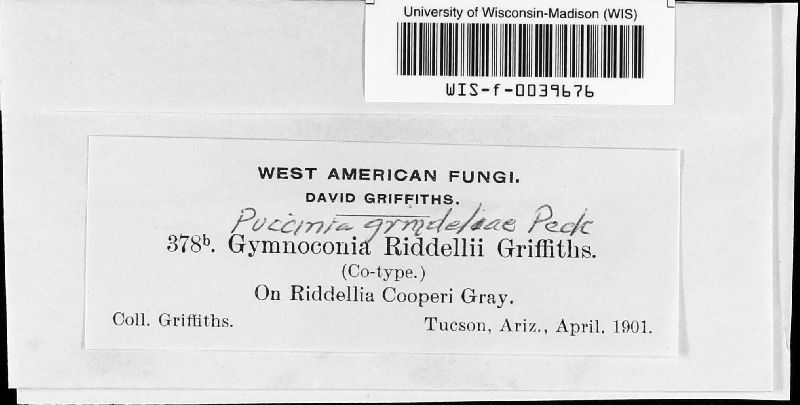 University of Wisconsin-Madison (WIS)
WIS-f-0039676
WEST AMERICAN FUNGI.
DAVID GRIFFITHS.
Puccinia grindeliae Peck
378b. Gymnoconia Riddellii Griffiths.
(Co-type.)
On Riddellia Cooperi Gray.
Coll. Griffiths. Tucson, Ariz., April, 1901.